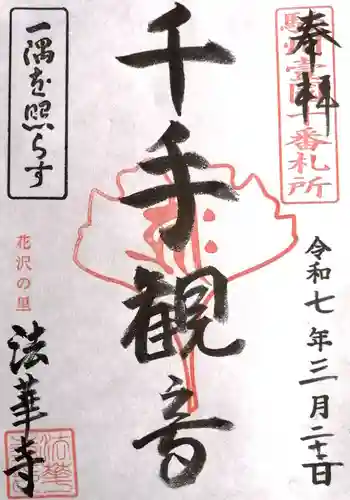 奉拝
駿州壹国十番札所
令和七年三月二十三日
千手観音
一隅を照らす
花沢の里
法華寺
法華